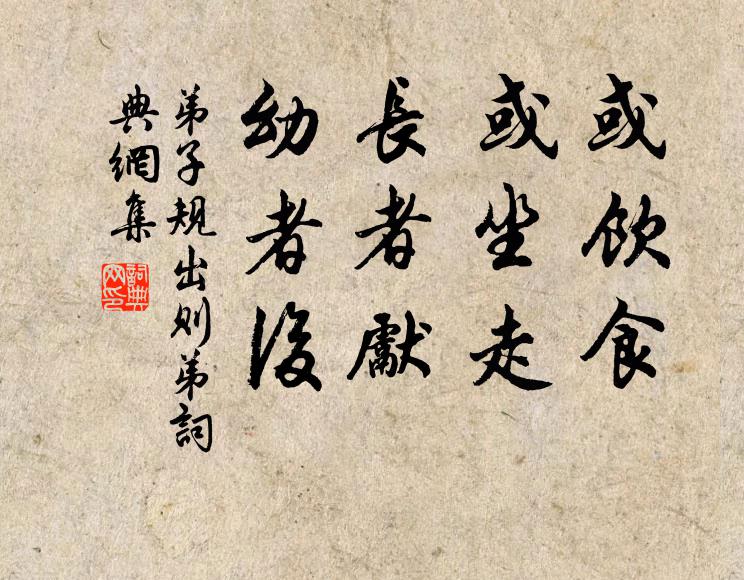 或飲食
或坐走
長者獻
幼者後
弟子規出则弟詞
典網集
詞典網印